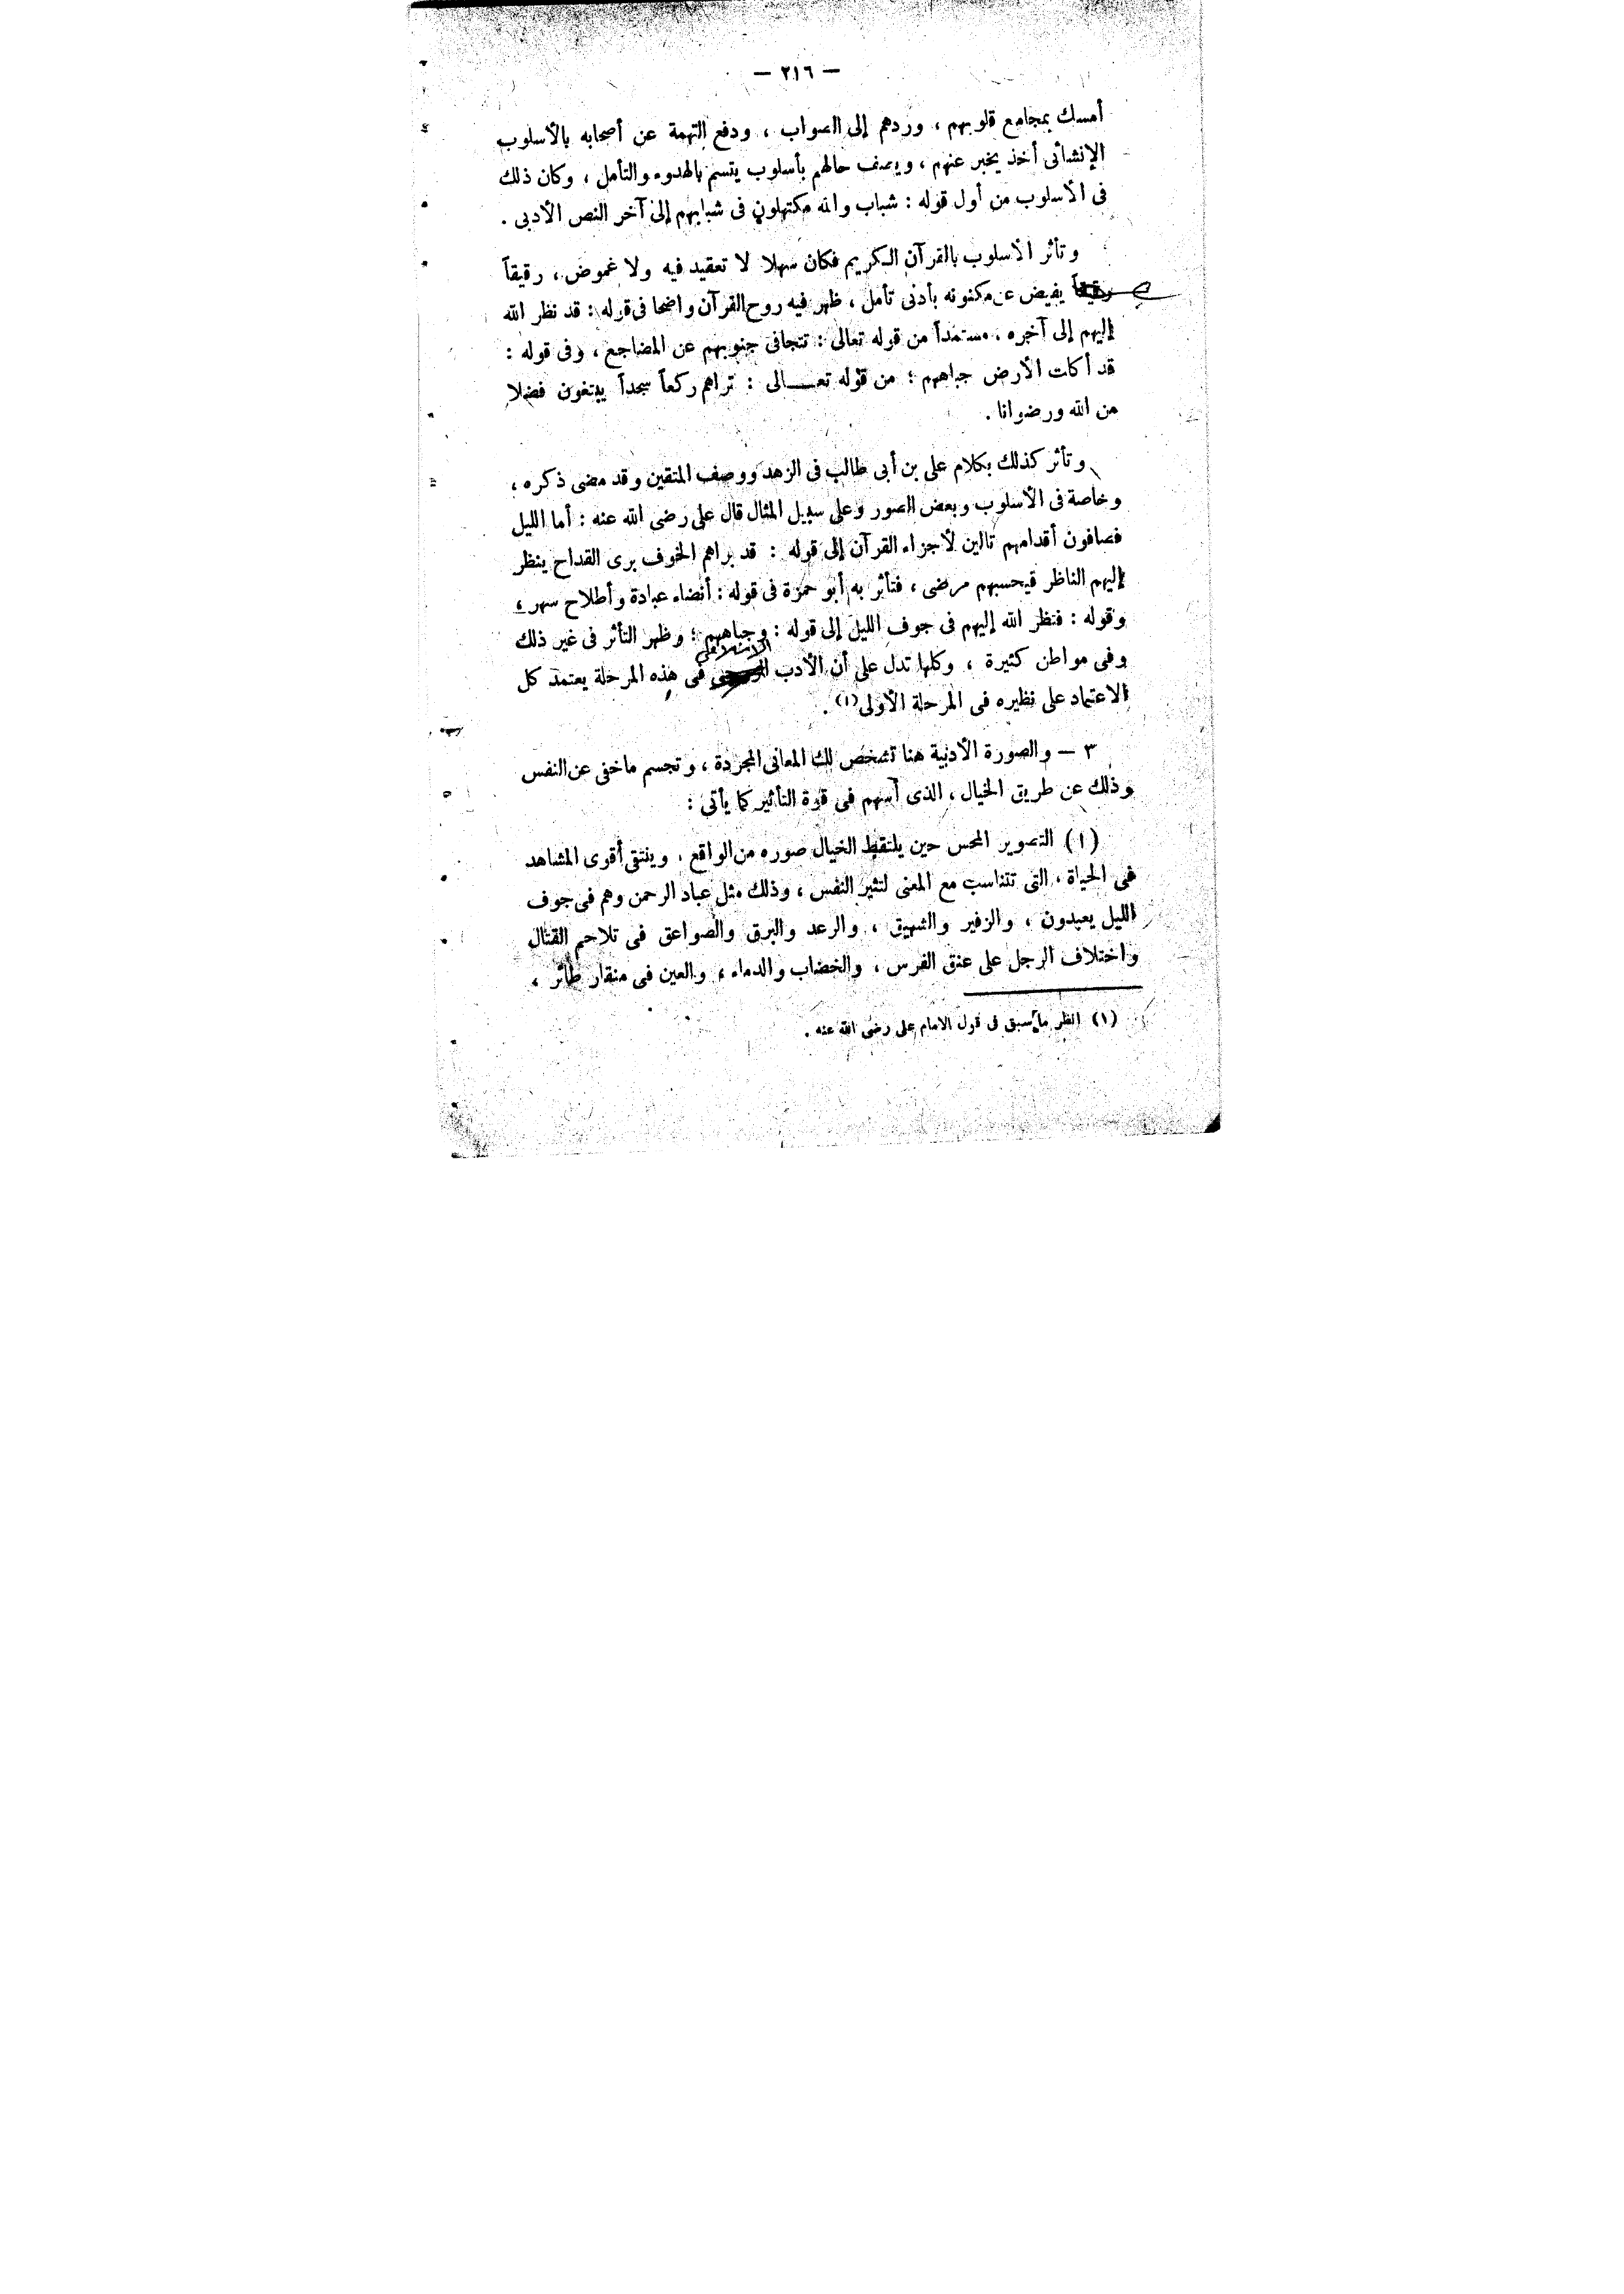 — ٢١٦ —
أمسك بمجامع قلوبهم ، وردهم إلى الصواب ، ودفع التهمة عن أصحابه بالأسلوب
الإنشائى أخذ يخبر عنهم ، ويصف حالهم بأسلوب يتسم بالهدوء والتأمل ، وكان ذلك
فى الأسلوب من أول قوله : شباب والله مكتهلون فى شبابهم إلى آخر النص الأدبى .
وتأثر الأسلوب بالقرآن الكريم فكان سهلا لا تعقيد فيه ولا غموض ، رقيقاً
يفيض عن مكنونه بأدنى تأمل ، ظهر فيه روح القرآن واضحا فى قوله : قد نظر الله
إليهم إلى آخره ، مستمداً من قوله تعالى : تتجافى جنوبهم عن المضاجع ، وفى قوله :
قد أكلت الأرض جباههم ؛ من قوله تعـــالى : تراهم ركعاً سجداً يبتغون فضلا
من الله ورضوانا .
وتأثر كذلك بكلام على بن أبى طالب فى الزهد ووصف المتقين وقد مضى ذكره ،
وخاصة فى الأسلوب وبعض الصور وعلى سبيل المثال قال على رضى الله عنه : أما الليل
فصافون أقدامهم تالين لأجزاء القرآن إلى قوله : قد براهم الخوف برى القداح ينظر
إليهم الناظر فيحسبهم مرضى ، فتأثر به أبو حمزة فى قوله : أنضاء عبادة وأطلاح سهر ،
وقوله : فنظر الله إليهم فى جوف الليل إلى قوله : وجباههم ؛ وظهر التأثر فى غير ذلك
وفى مواطن كثيرة ، وكلها تدل على أن الأدب الإسلامى فى هذه المرحلة يعتمد كل
الاعتماد على نظيره فى المرحلة الأولى(١) .
٣ — والصورة الأدبية هنا تشخص لك المعانى المجردة ، وتجسم ماخفى عن النفس
وذلك عن طريق الخيال ، الذى أسهم فى قوة التأثير كما يأتى :
(١) التصوير المحس حين يلتقط الخيال صوره من الواقع ، وينتقى أقوى المشاهد
فى الحياة ، التى تتناسب مع المعنى لتثير النفس ، وذلك مثل عباد الرحمن وهم فى جوف
الليل يعبدون ، والزفير والشهيق ، والرعد والبرق والصواعق فى تلاحم القتال
واختلاف الرجل على عنق الفرس ، والخضاب والدماء ، والعين فى منقار طائر ،
(١) انظر ما سبق فى قول الامام على رضى الله عنه .